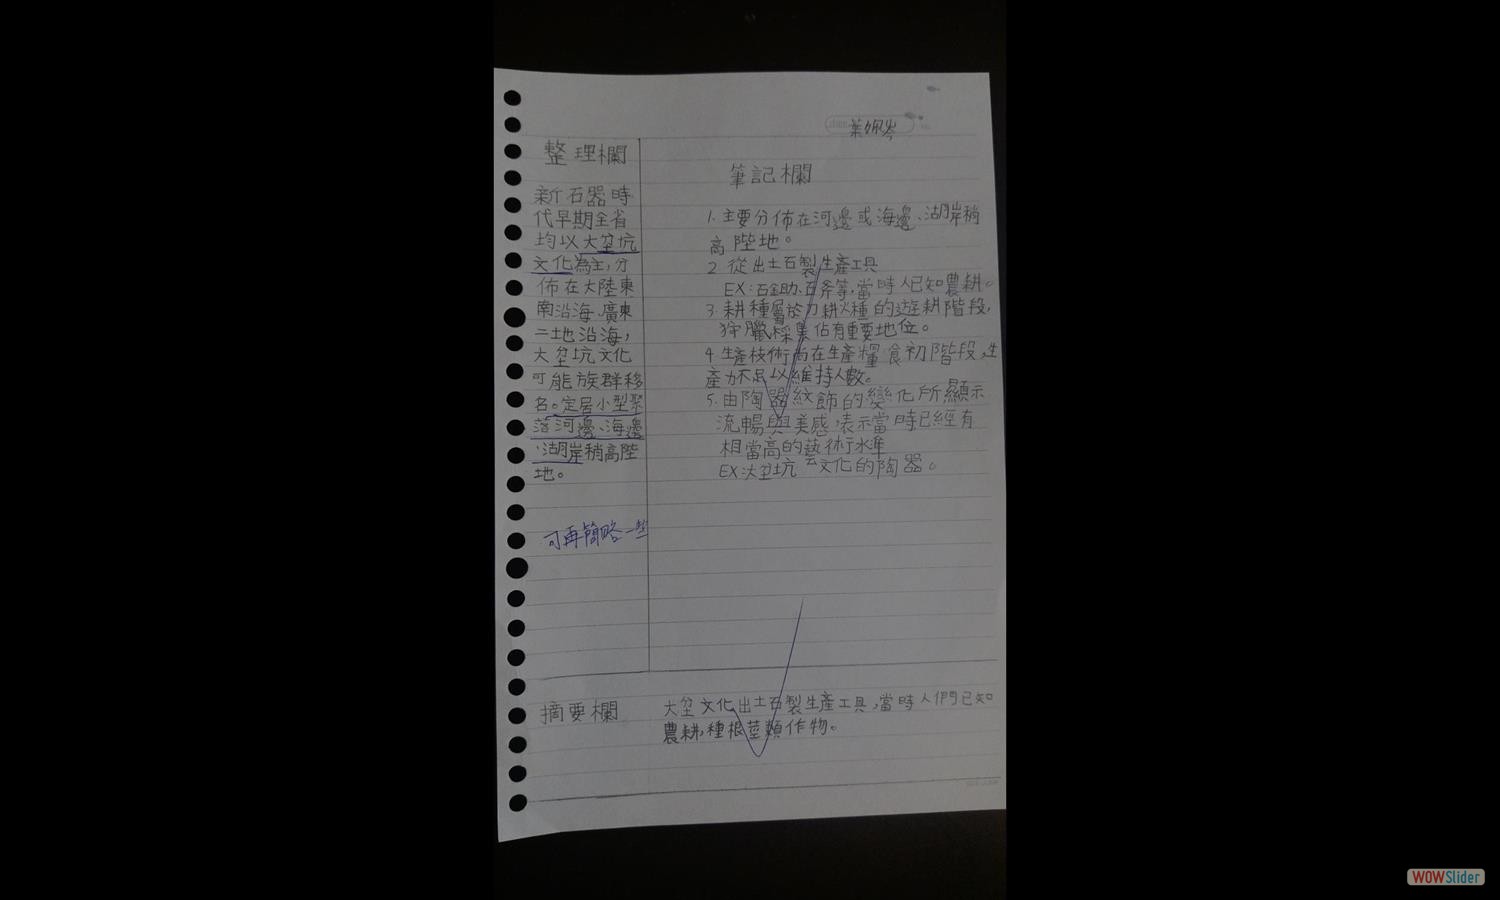 葉姵岑
整理欄
新石器時
代早期全省
均以大坌坑
文化為主,分
佈在大陸東
南沿海、廣東
二地沿海,
大坌坑文化
可能族群移
名。定居小型聚
落河邊、海邊
、湖岸稍高陛
地。
可再簡略一些
筆記欄
1. 主要分佈在河邊或海邊、湖岸稍
高陛地。
2 從出土石製生產工具
EX:石鋤、石斧等,當時人已知農耕。
3. 耕種屬於刀耕火種的遊耕階段,
狩獵採集佔有重要地位。
4 生產技術尚在生產糧食初階段,生
產力不足以維持人數。
5. 由陶器紋飾的變化所顯示
流暢與美感,表示當時已經有
相當高的藝術水準
EX:大坌坑文化的陶器。
摘要欄
大坌文化出土石製生產工具,當時人們已知
農耕,種根莖類作物。
WOWSlider